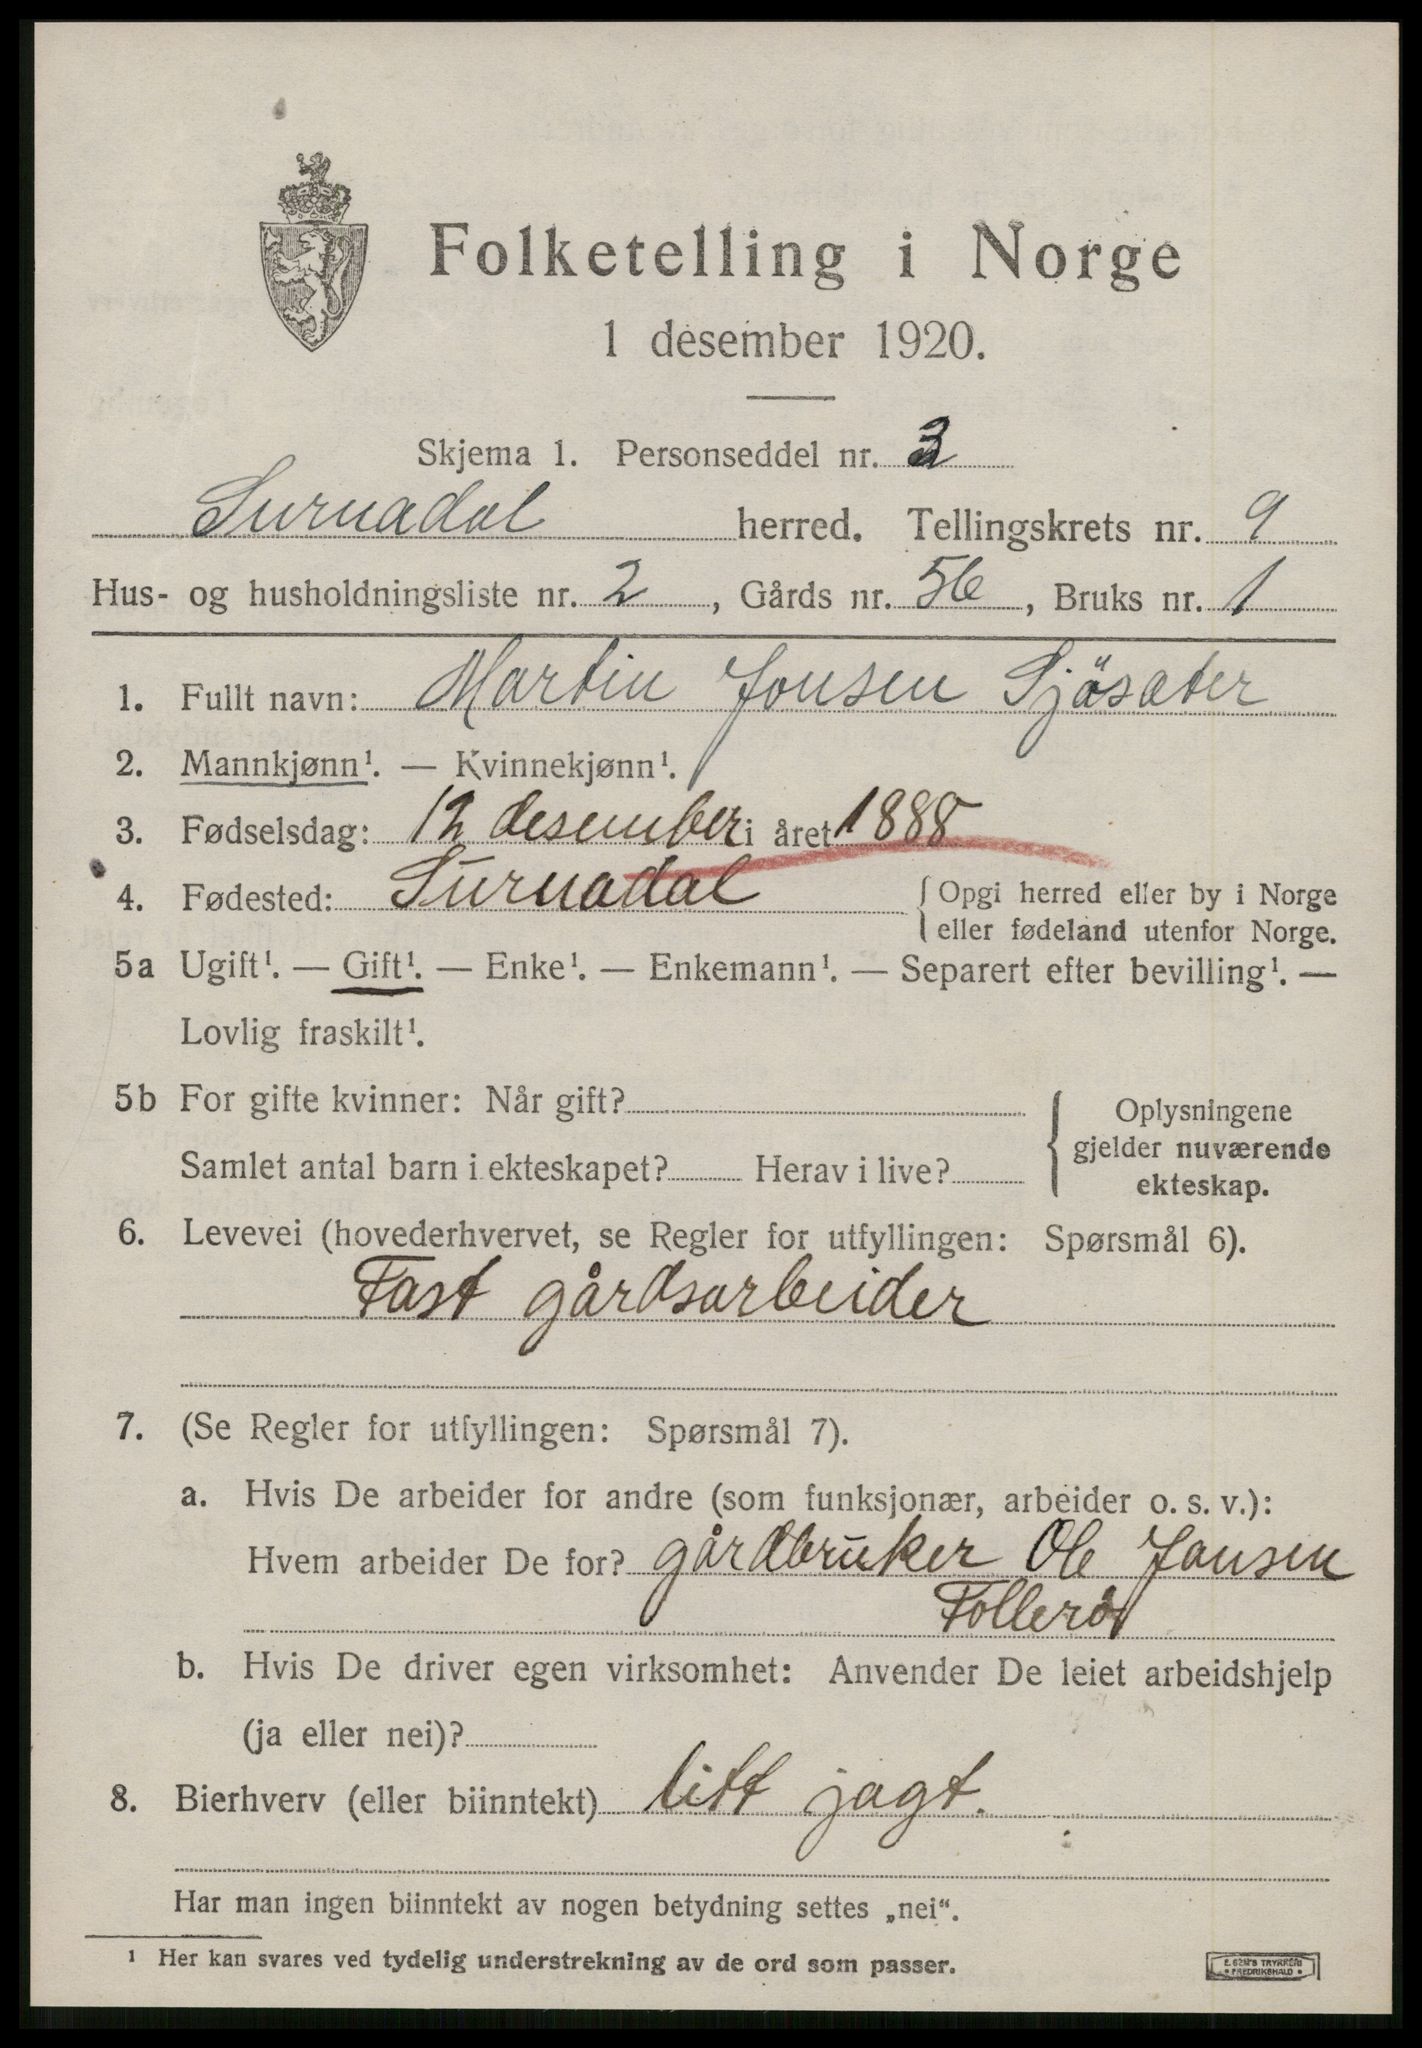 Folketelling i Norge
1 desember 1920.
Skjema 1. Personseddel nr. 3
Surnadal herred. Tellingskrets nr. 9
Hus- og husholdningsliste nr. 2, Gårds nr. 56, Bruks nr. 1
1. Fullt navn: Martin Jonsen Sjösæter
2. Mannkjønn¹. — Kvinnekjønn¹.
3. Fødselsdag: 12 desember i året 1888
4. Fødested: Surnadal { Opgi herred eller by i Norge
eller fødeland utenfor Norge.
5a Ugift¹. — Gift¹. — Enke¹. — Enkemann¹. — Separert efter bevilling¹. —
Lovlig fraskilt¹.
5b For gifte kvinner: Når gift?
Samlet antal barn i ekteskapet? Herav i live?
{ Oplysningene
gjelder nuværende
ekteskap.
6. Levevei (hovederhvervet, se Regler for utfyllingen: Spørsmål 6).
Fast gårdsarbeider
7. (Se Regler for utfyllingen: Spørsmål 7).
a. Hvis De arbeider for andre (som funksjonær, arbeider o. s. v.):
Hvem arbeider De for? gårdbruker Ole Jonsen
Follerø
b. Hvis De driver egen virksomhet: Anvender De leiet arbeidshjelp
(ja eller nei)?
8. Bierhverv (eller biinntekt) litt jagt.
Har man ingen biinntekt av nogen betydning settes „nei“.
¹ Her kan svares ved tydelig understrekning av de ord som passer.
E. SEM'S TRYKKERI
FREDRIKSHALD